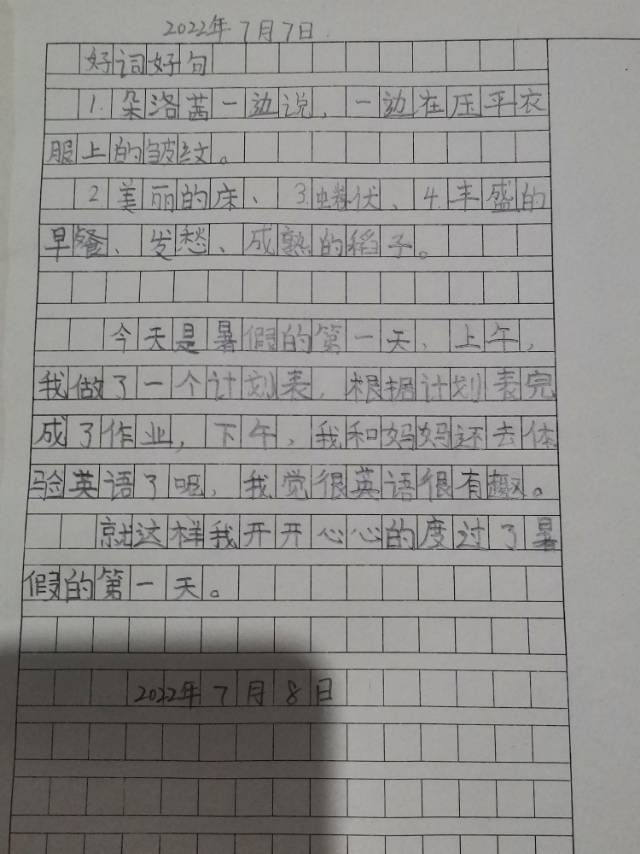 2022年7月7日
好词好句
1.朵洛茜一边说，一边在压平衣
服上的皱纹。
2美丽的床、3.蜷伏、4.丰盛的
早餐、发愁、成熟的稻子。
今天是暑假的第一天、上午，
我做了一个计划表，根据计划表完
成了作业，下午，我和妈妈还去体
验英语了呢，我觉很英语很有趣。
就这样我开开心心的度过了暑
假的第一天。
2022年7月8日